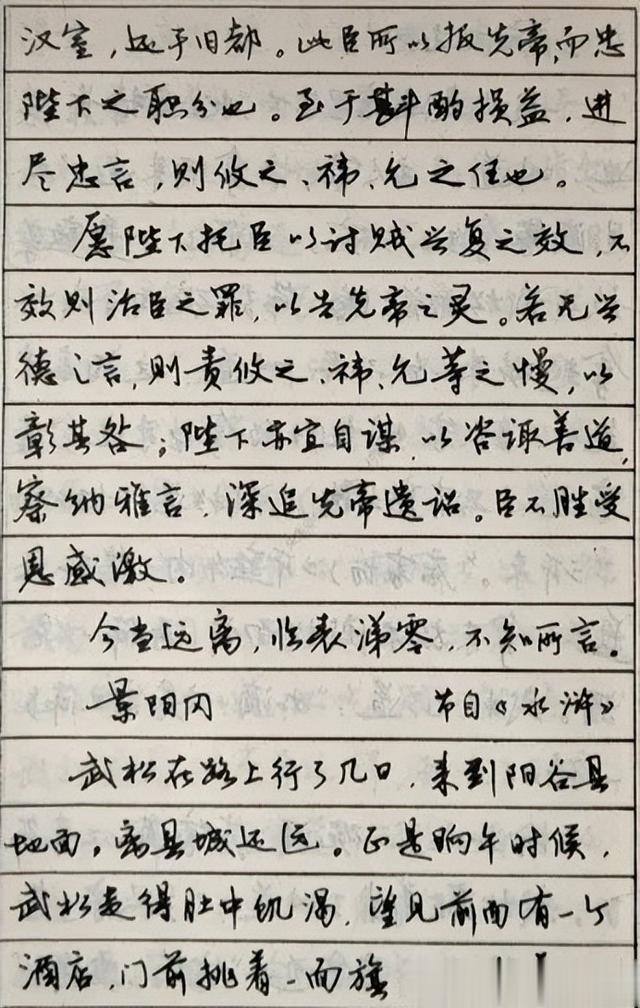 汉室，还于旧都。此臣所以报先帝，而忠
陛下之职分也。至于斟酌损益，进
尽忠言，则攸之、祎、允之任也。
愿陛下托臣以讨贼兴复之效，不
效则治臣之罪，以告先帝之灵。若无兴
德之言，则责攸之、祎、允等之慢，以
彰其咎；陛下亦宜自谋，以咨诹善道，
察纳雅言，深追先帝遗诏。臣不胜受
恩感激。
今当远离，临表涕零，不知所言。
景阳冈 节自《水浒》
武松在路上行了几日，来到阳谷县
地面。离县城还远。正是晌午时候，
武松走得肚中饥渴，望见前面有一个
酒店，门前挑着一面旗